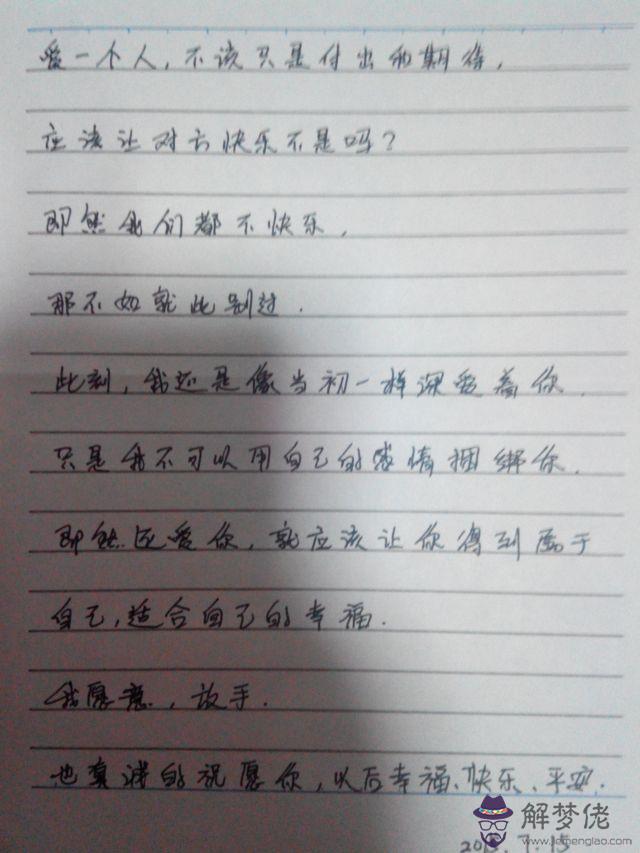 爱一个人,不该只是付出和期待,
应该让对方快乐不是吗?
即然我们都不快乐,
那不如就此别过.
此刻,我还是像当初一样深爱着你.
只是我不可以用自己的感情捆绑你.
即然还爱你,就应该让你得到属于
自己,适合自己的幸福.
我愿意,放手.
也真诚的祝愿你,以后幸福、快乐、平安.
解梦佬
www.jiemenglao.com
7.15